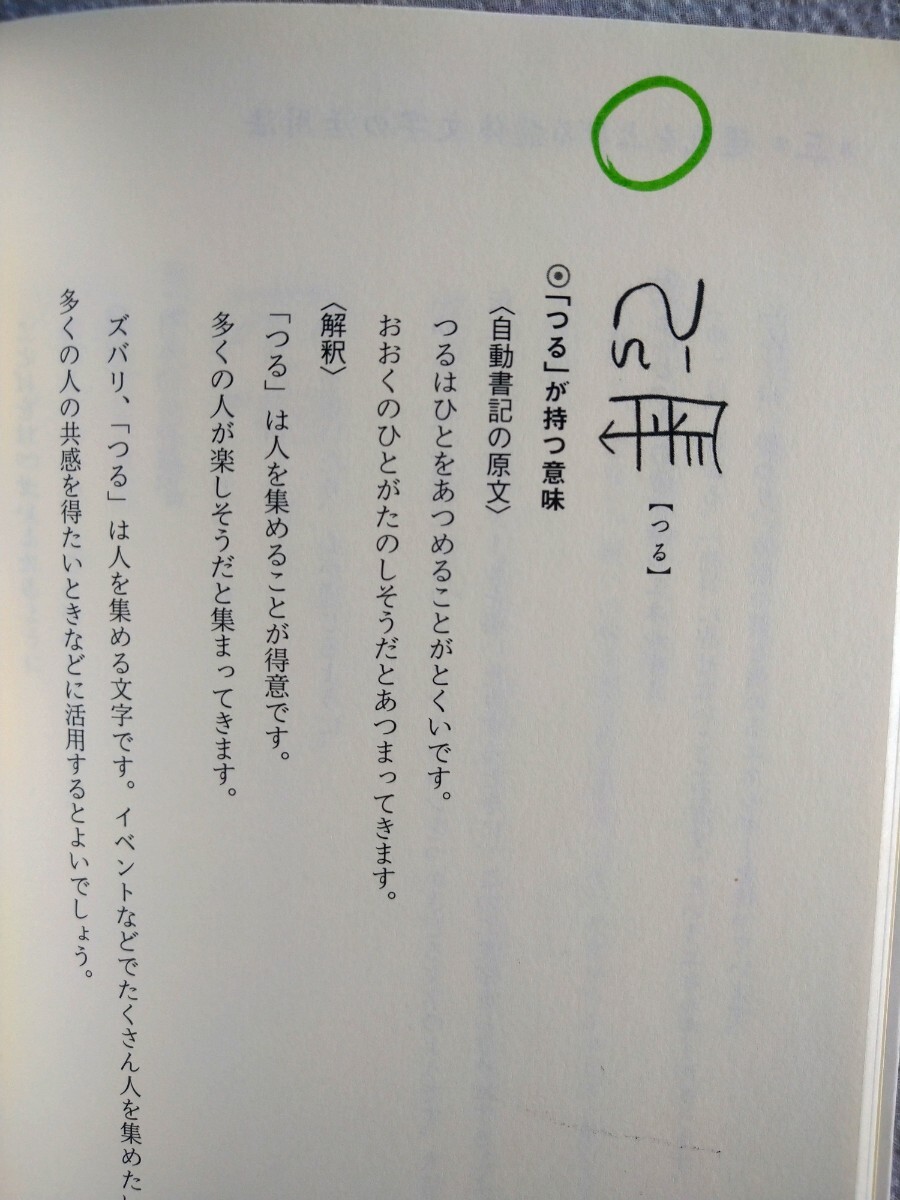 【つる】
◉「つる」が持つ意味
〈自動書記の原文〉
つるはひとをあつめることがとくいです。
おおくのひとがたのしそうだとあつまってきます。
〈解釈〉
「つる」は人を集めることが得意です。
多くの人が楽しそうだと集まってきます。
ズバリ、「つる」は人を集める文字です。イベントなどでたくさん人を集めた
多くの人の共感を得たいときなどに活用するとよいでしょう。